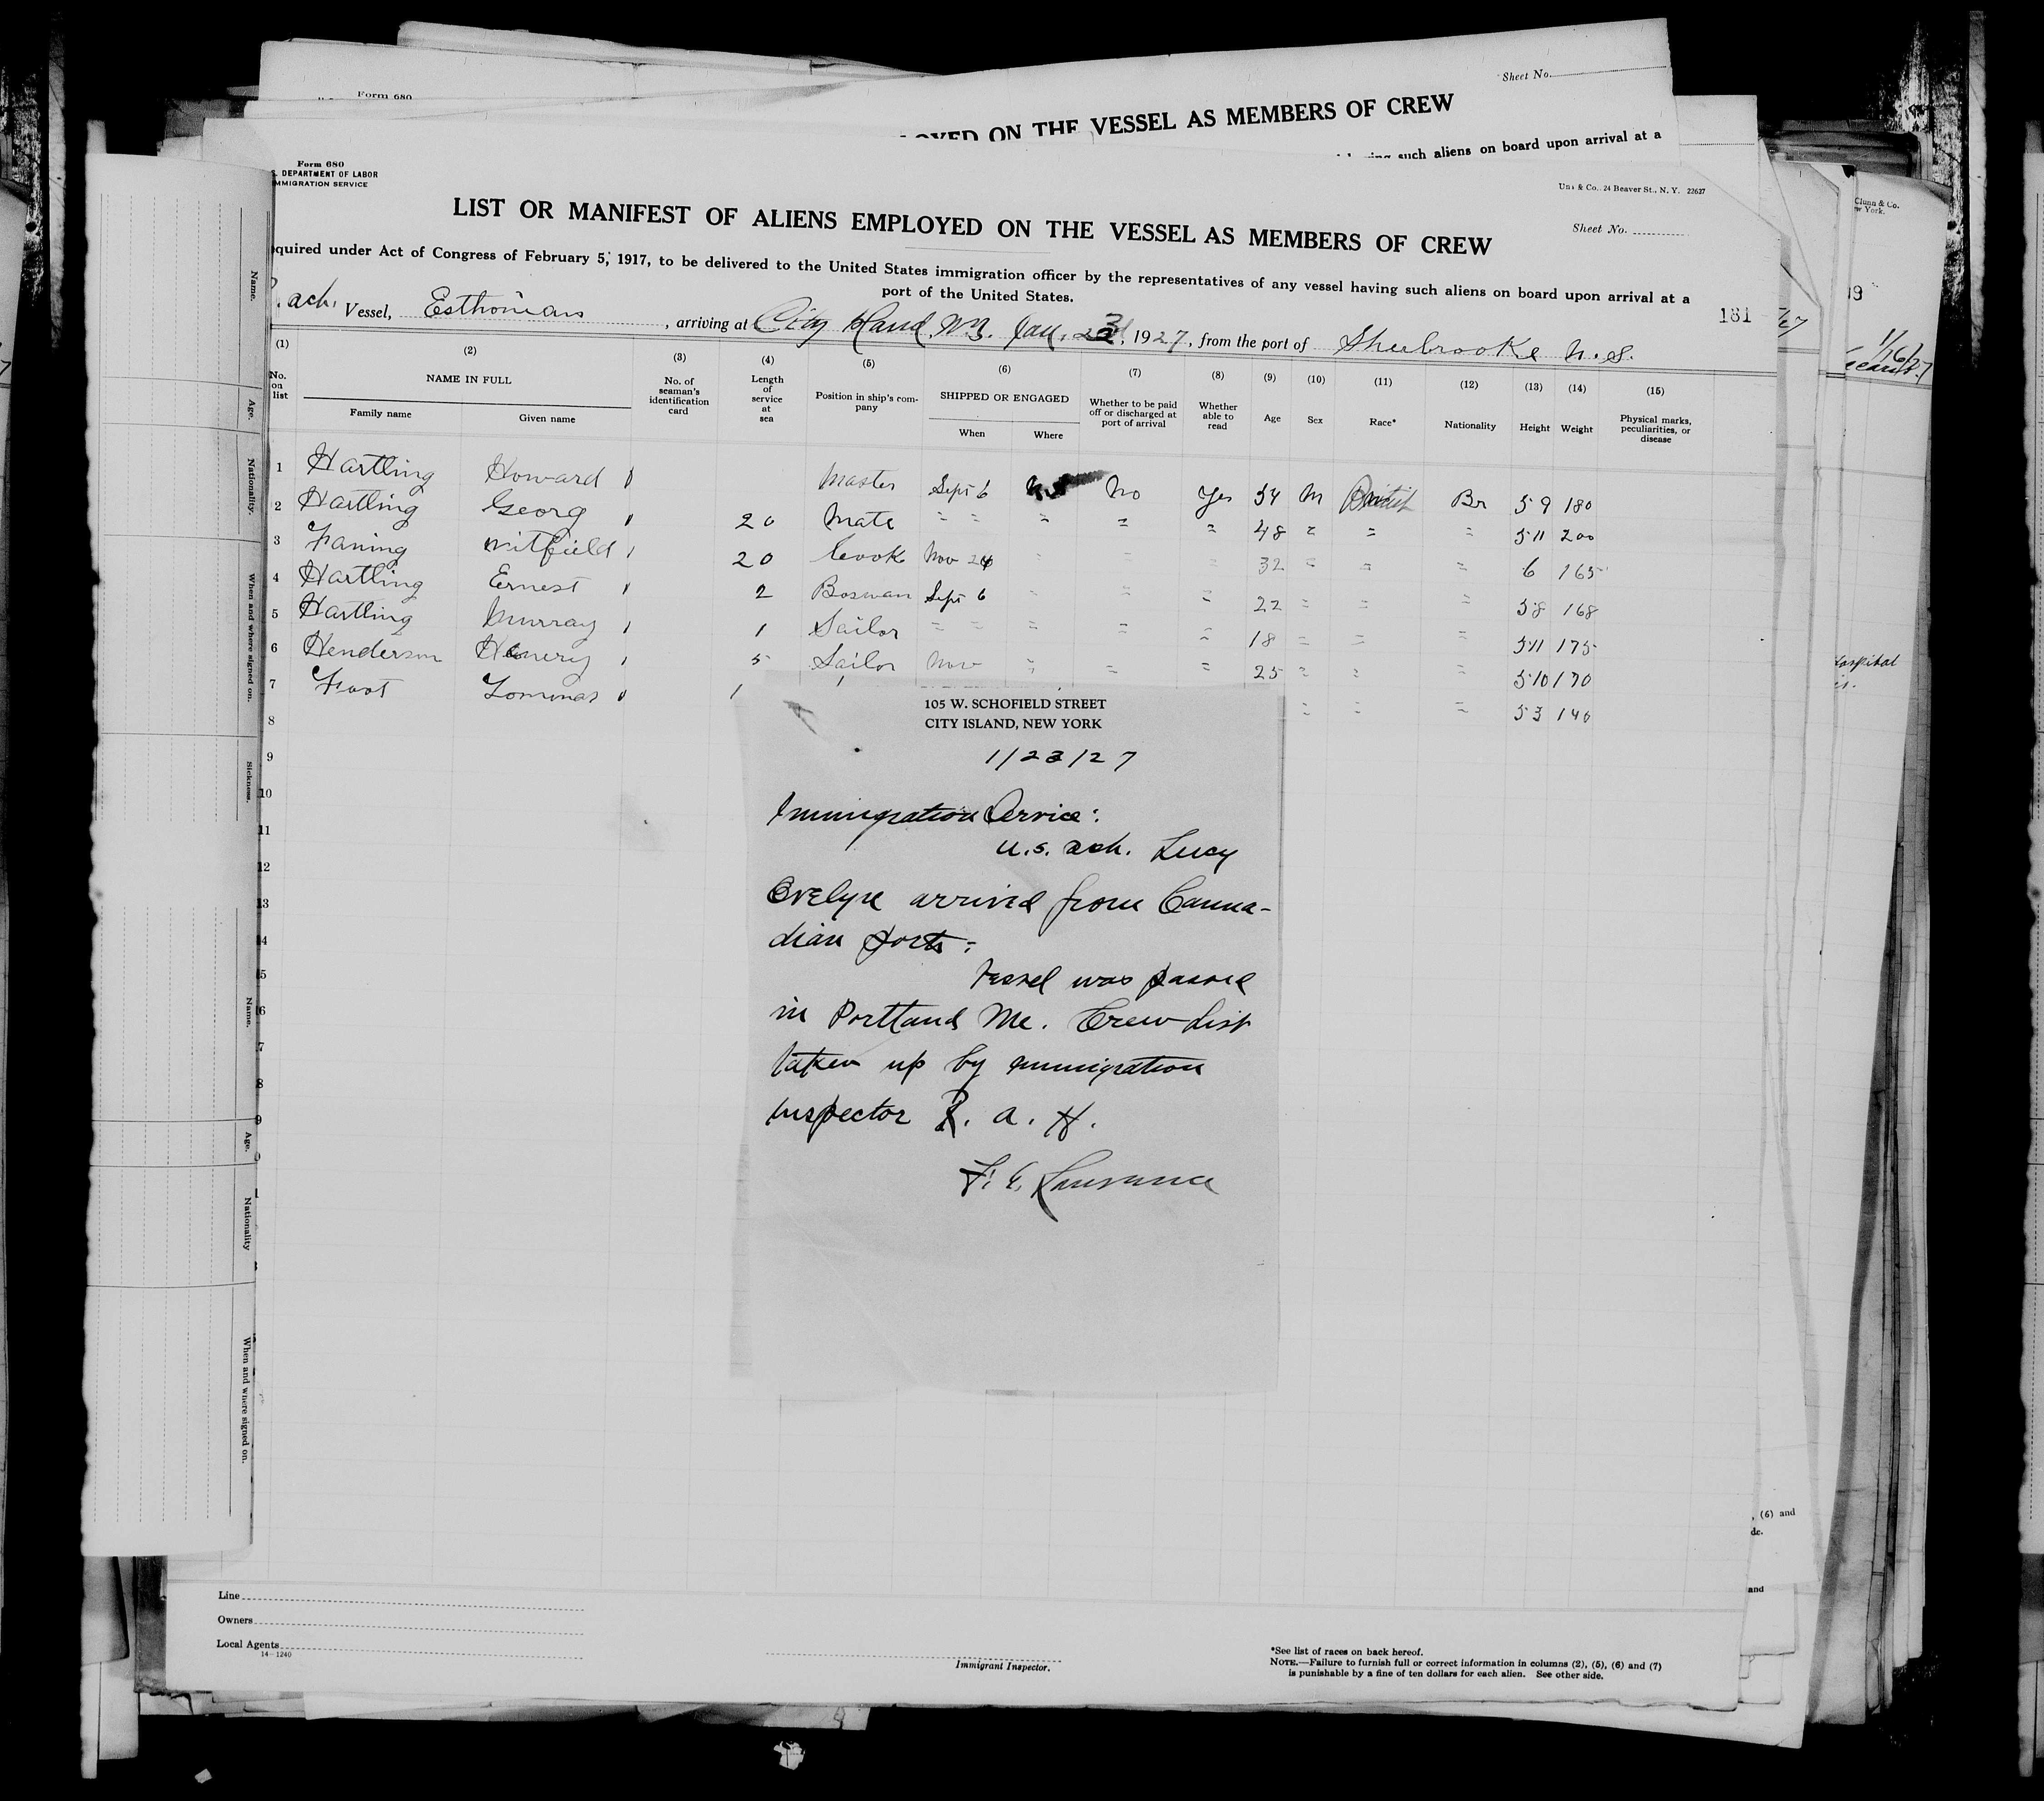 Sheet No.
Form 680
ON THE VESSEL AS MEMBERS OF CREW
such aliens on board upon arrival at a
Form 680
S. DEPARTMENT OF LABOR
IMMIGRATION SERVICE
& Co., 24 Beaver St., N. Y. 22627
Clunn & Co.
New York.
LIST OR MANIFEST OF ALIENS EMPLOYED ON THE VESSEL AS MEMBERS OF CREW
Sheet No.
quired under Act of Congress of February 5, 1917, to be delivered to the United States immigration officer by the representatives of any vessel having such aliens on board upon arrival at a
port of the United States.
sch. Vessel, Esthonian, arriving at City Island, N.Y. Jan. 23d, 1927, from the port of Sherbrooke N.S.
181
19
1/16/27
(1) (2) (3) (4) (5) (6) (7) (8) (9) (10) (11) (12) (13) (14) (15)
No. on list
NAME IN FULL
Family name
Given name
No. of seaman's identification card
Length of service at sea
Position in ship's company
SHIPPED OR ENGAGED
When
Where
Whether to be paid off or discharged at port of arrival
Whether able to read
Age
Sex
Race*
Nationality
Height
Weight
Physical marks, peculiarities, or disease
1 Hartling Howard Master Sept 6 No Yes 54 M British Br 5 9 180
2 Hartling Georg 20 Mate " " " " " 48 " " " 5 11 200
3 Faning Witfield 20 Cook Nov 24 " " " 32 " " " 6 165
4 Hartling Ernest 2 Boswan Sept 6 " " " 22 " " " 5 8 168
5 Hartling Murray 1 Sailor " " " " " 18 " " " 5 11 175
6 Henderson Henery 5 Sailor Nov " " " 25 " " " 5 10 170
7 Foot Tommas 1 " " " 5 3 140
8
9
10
11
12
13
14
15
16
7
8
9
105 W. SCHOFIELD STREET
CITY ISLAND, NEW YORK
1/23/27
Immigration Service:
U.S. Sch. Lucy
Evelyn arrived from Canna-
dian ports;
Vessel was passed
in Portland Me. Crew list
taken up by immigration
inspector R. A. H.
F. E. Lawrance
Hospital
Name.
Age.
Nationality.
When and where signed on.
Sickness.
Name.
Age.
Nationality
When and where signed on.
, (6) and
de.
and
Line
Owners
Local Agents
14—1240
Immigrant Inspector.
*See list of races on back hereof.
NOTE.—Failure to furnish full or correct information in columns (2), (5), (6) and (7)
is punishable by a fine of ten dollars for each alien. See other side.